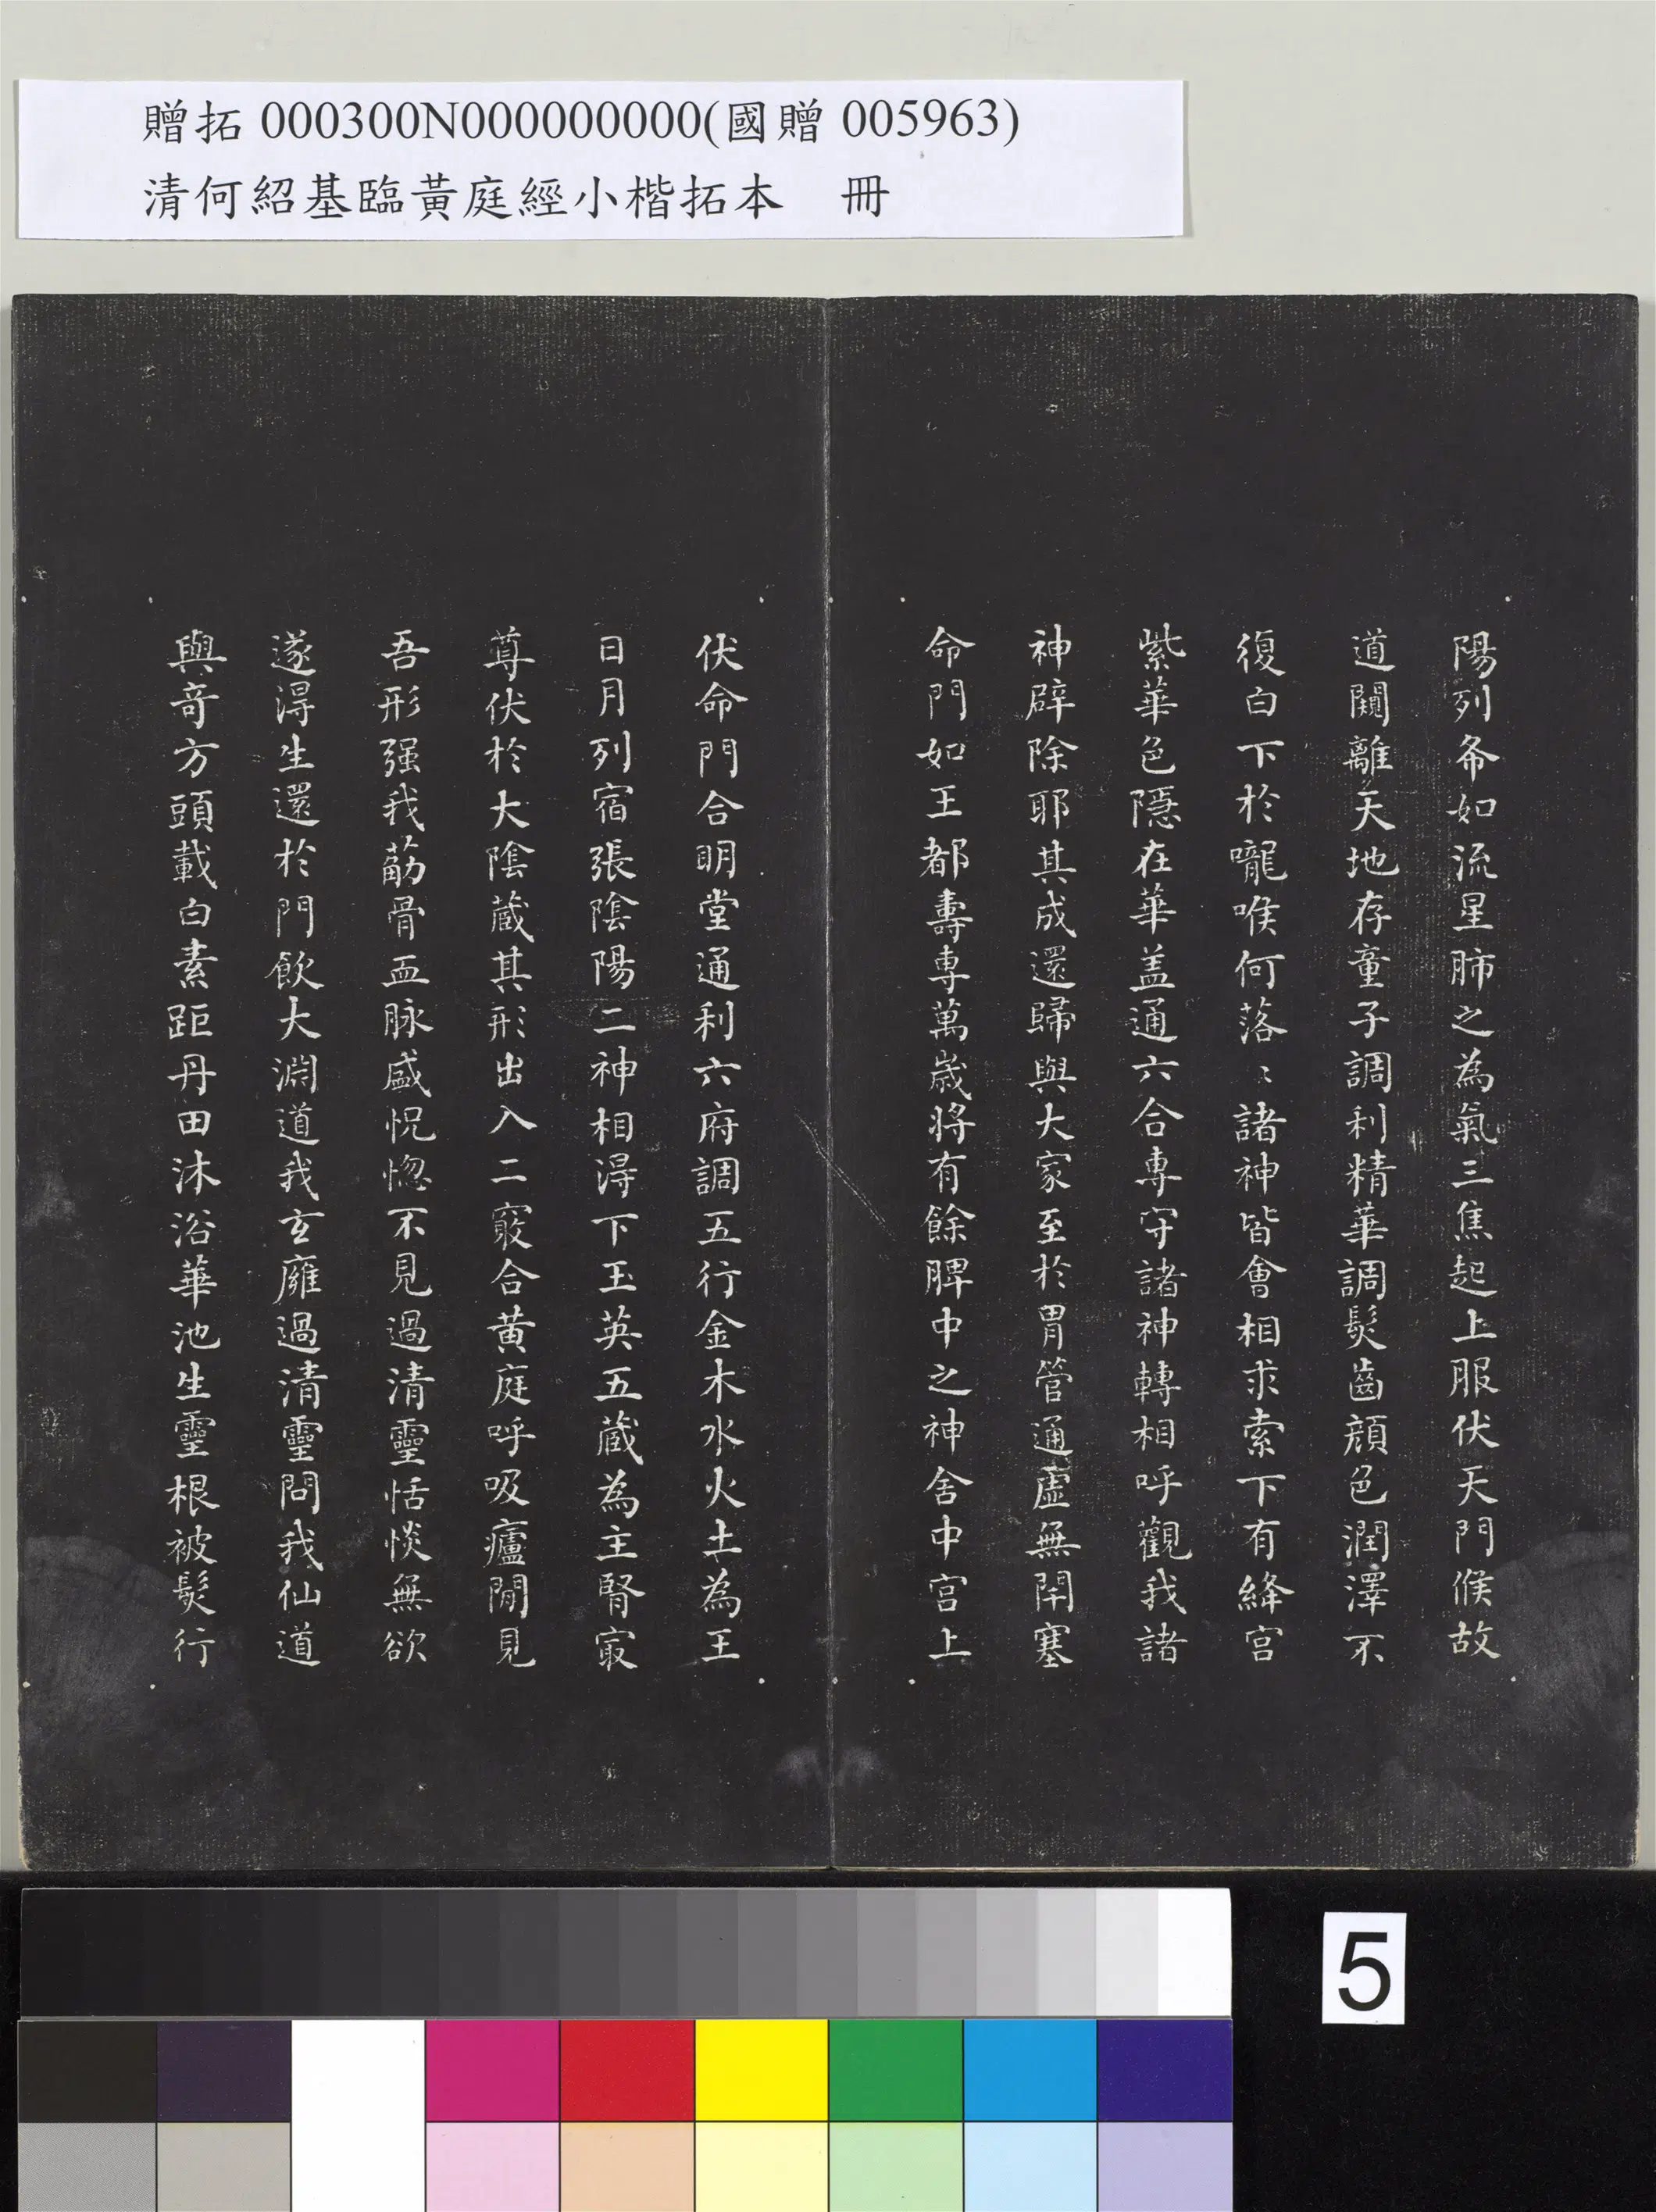 贈拓 000300N000000000(國贈 005963)
清何紹基臨黃庭經小楷拓本 冊
陽列布如流星肺之為氣三焦起上服伏天門候故
道闚離天地存童子調利精華調髮齒顏色潤澤不
復白下於嚨喉何落〻諸神皆會相求索下有絳宮
紫華色隱在華盖通六合專守諸神轉相呼觀我諸
神辟除耶其成還歸與大家至於胃管通虛無閇塞
命門如王都壽專萬歲將有餘脾中之神舍中宮上
伏命門合明堂通利六府調五行金木水火土為王
日月列宿張陰陽二神相淂下玉英五蔵為主腎㝡
尊伏於大陰蔵其形出入二竅合黄庭呼吸廬閒見
吾形强我筋骨血脉盛怳惚不見過清靈恬惔無欲
遂淂生還於門飲大淵道我玄廱過清靈問我仙道
與奇方頭載白素距丹田沐浴華池生靈根被髮行
5